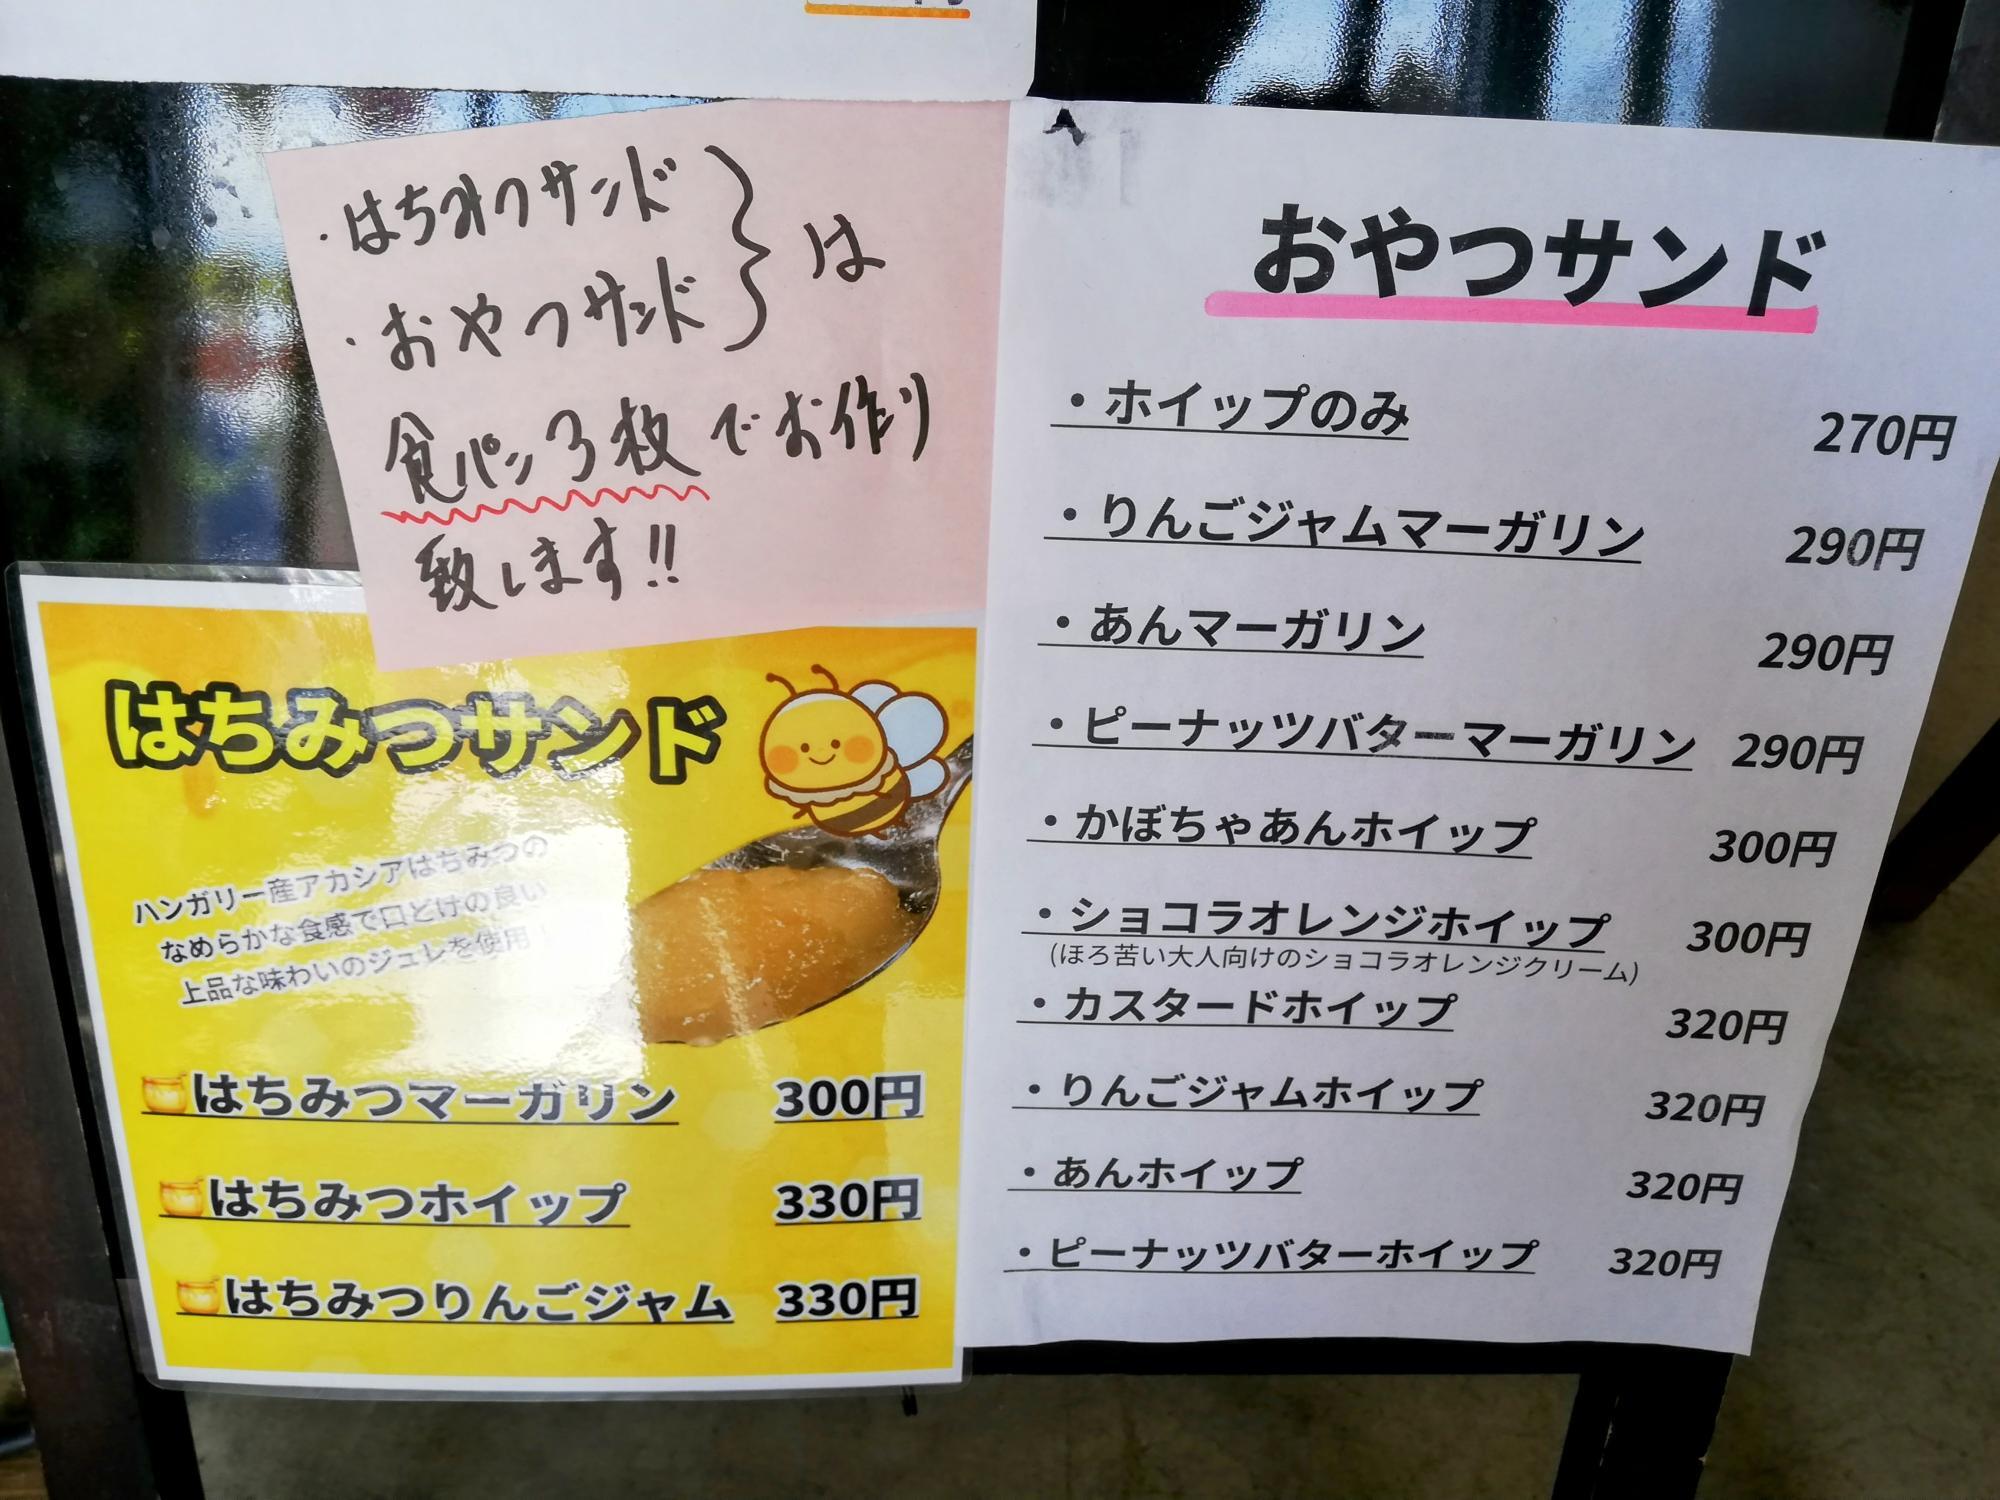 ・はちみつサンド
・おやつサンド
は
食パン3枚でお作り
致します!!
はちみつサンド
ハンガリー産アカシアはちみつの
なめらかな食感で口どけの良い
上品な味わいのジュレを使用!
はちみつマーガリン 300円
はちみつホイップ 330円
はちみつりんごジャム 330円
おやつサンド
・ホイップのみ 270円
・りんごジャムマーガリン 290円
・あんマーガリン 290円
・ピーナッツバターマーガリン 290円
・かぼちゃあんホイップ 300円
・ショコラオレンジホイップ 300円
(ほろ苦い大人向けのショコラオレンジクリーム)
・カスタードホイップ 320円
・りんごジャムホイップ 320円
・あんホイップ 320円
・ピーナッツバターホイップ 320円